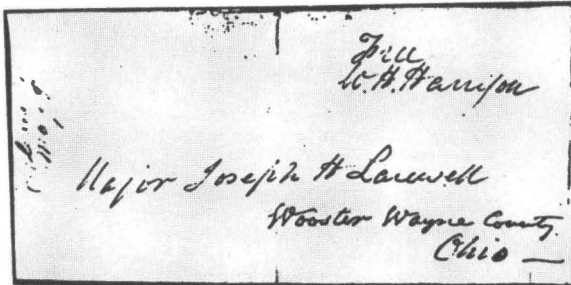 Free
W. H. Harrison
Major Joseph H Larwell
Wooster Wayne County.
Ohio —